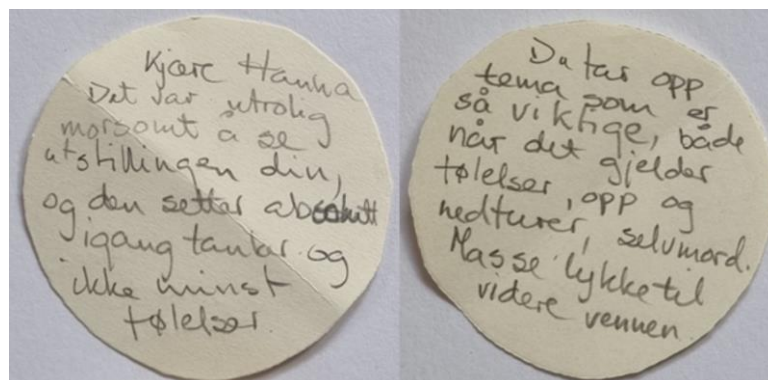 Kjære Hanna
Det var utrolig
morsomt å se
utstillingen din,
og den setter absolutt
igang tanker og
ikke minst
følelser
Du tar opp
tema som er
så viktige, både
når det gjelder
følelser, opp og
nedturer, selvmord.
Masse lykke til
videre vennen.